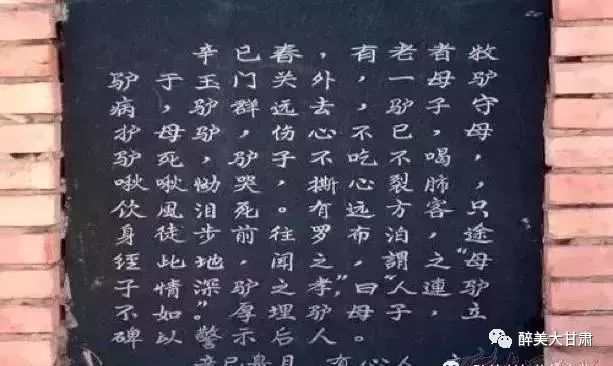 辛已春,有老者牧
驴于王门关外,一母驴
病,驴群远去,驴子守
护母驴,伤心不已,母
驴死,驴子不吃不喝,
啾啾恸哭,撕心裂肺,
饮風泪死。有远方客,只
身徒步前往罗布泊,途
经此地,闻之,謂之"母
子情深""驴之孝",曰"人連驴
不如"。厚埋驴母子,立
碑以警示后人。
有心人
醉美大甘肃